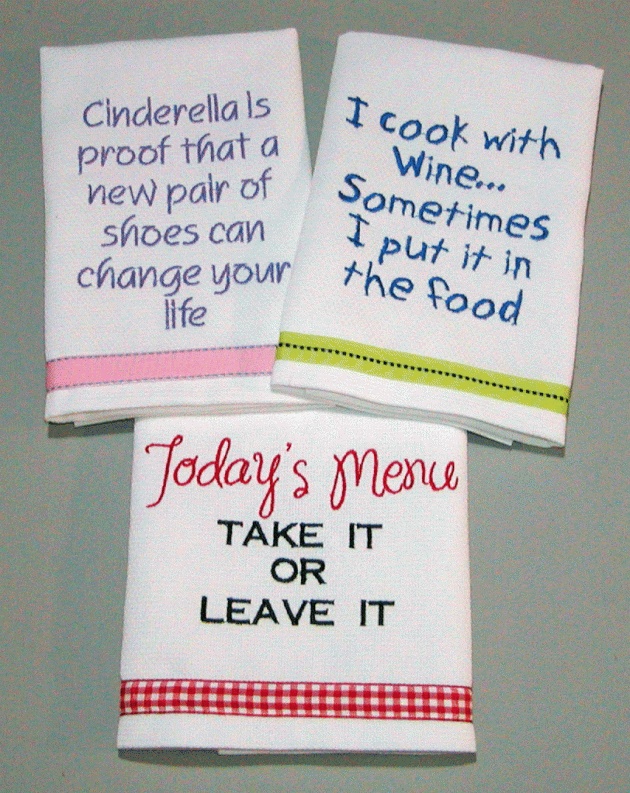 Cinderella Is
proof that a
new pair of
shoes can
change your
life
I cook with
Wine...
Sometimes
I put it in
the food
Today's Menu
TAKE IT
OR
LEAVE IT